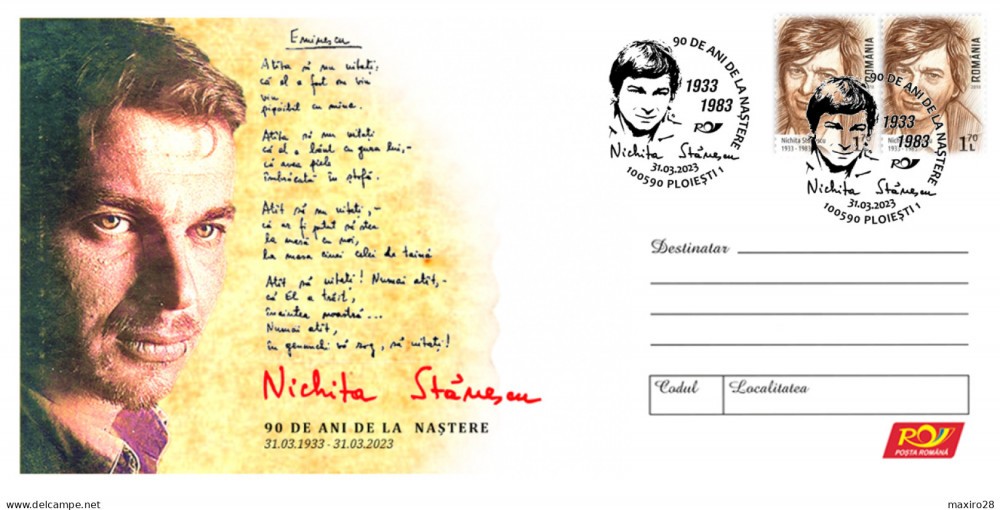 Eminescu
Atîta să nu uitați,
că el a fost om viu
viu,
pipăibil cu mîna.
Atîta să nu uitați
că el a băut cu gura lui,-
că avea piele
îmbrăcată în ștofă.
Atît să nu uitați,-
că ar fi putut să stea
la masă cu noi,
la masa cinei celei de taină
Atît să uitați! Numai atît,-
că El a trăit,
înaintea noastră...
Numai atît,
în genunchi vă rog, să uitați!
Nichita Stănescu
90 DE ANI DE LA NAȘTERE
31.03.1933 - 31.03.2023
90 DE ANI DE LA NAȘTERE
1933
1983
Nichita Stănescu
31.03.2023
100590 PLOIEȘTI 1
ROMÂNIA
Nichita Stănescu
1933 - 1983
1,70
ROMÂNIA
1,70
L
90 DE ANI DE LA NAȘTERE
1933
1983
Nichita Stănescu
31.03.2023
100590 PLOIEȘTI 1
Destinatar
Codul
Localitatea
POȘTA ROMÂNĂ
delcampe.net
maxiro28